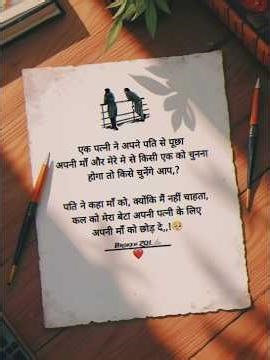 एक पत्नी ने अपने पति से पूछा
अपनी माँ और मेरे मे से किसी एक को चुनना
होगा तो किसे चुनेंगे आप,?
पति ने कहा माँ को, क्योंकि मैं नहीं चाहता,
कल को मेरा बेटा अपनी पत्नी के लिए
अपनी माँ को छोड़ दे,,!🥺